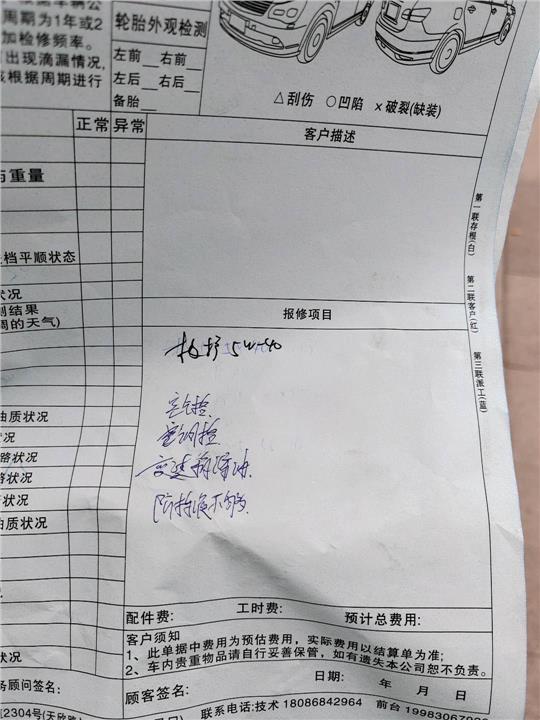 周期为1年或2
加检修频率。
出现滴漏情况,
根据周期进行
轮胎外观检测
左前__右前__
左后__右后__
备胎__
△刮伤 ○凹陷 ×破裂(缺装)
正常 异常
客户描述
与重量
档平顺状态
状况
测结果
周的天气)
第一联存根(白) 第二联客户(红) 第三联派工(蓝)
报修项目
5W-40
油质状况
状况
路状况
状况
状况
油质状况
变速箱漏油
防揰液不够
配件费: 工时费: 预计总费用:
客户须知
1、此单据中费用为预估费用,实际费用以结算单为准;
2、车内贵重物品请自行妥善保管,如有遗失本公司恕不负责。
状况
日期: 年 月 日
务顾问签名:
顾客签名:
2304号(天欣路
联系电话:技术 18086842964 前台